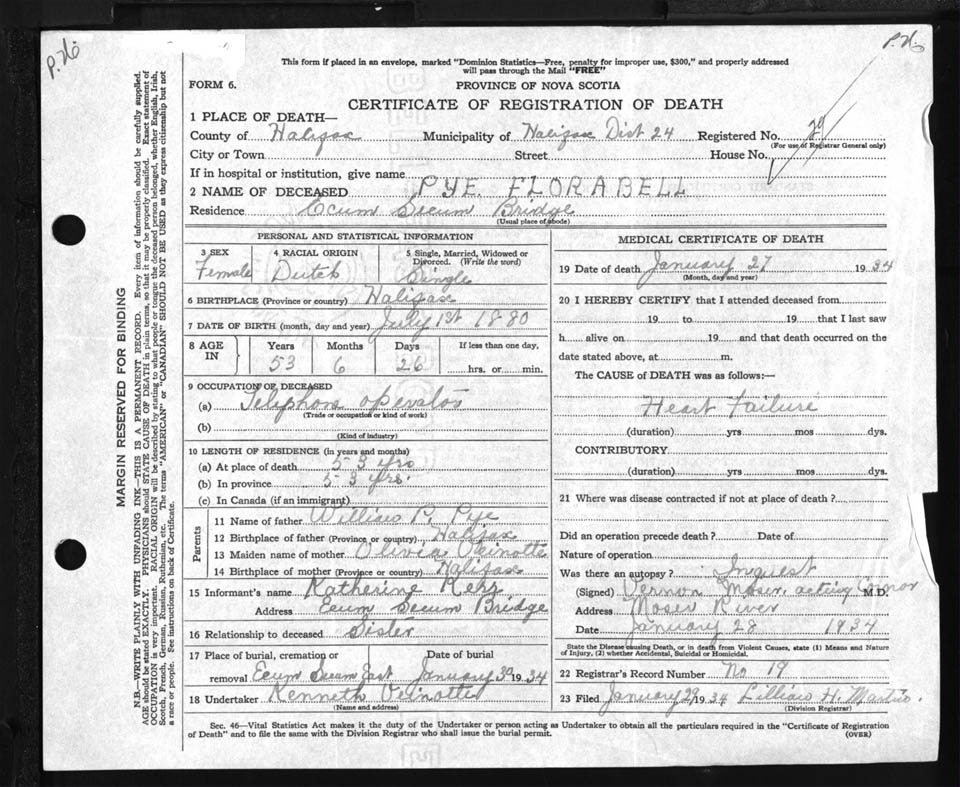 P. N.
P. N.
This form if placed in an envelope, marked "Dominion Statistics—Free, penalty for improper use, $300," and properly addressed
will pass through the Mail "FREE"
FORM 6.
PROVINCE OF NOVA SCOTIA
CERTIFICATE OF REGISTRATION OF DEATH
1 PLACE OF DEATH—
County of Halifax Municipality of Halifax Dist 24 Registered No.
(For use of Registrar General only)
City or Town Street House No.
If in hospital or institution, give name
2 NAME OF DECEASED PYE. FLORABELL
Residence Ecum Secum Bridge
(Usual place of abode)
PERSONAL AND STATISTICAL INFORMATION
3 SEX 4 RACIAL ORIGIN 5 Single, Married, Widowed or
Divorced. (Write the word)
Female Dutch Single
6 BIRTHPLACE (Province or country) Halifax
7 DATE OF BIRTH (month, day and year) July 1st 1880
8 AGE IN Years Months Days If less than one day,
53 6 26 hrs. or min.
9 OCCUPATION OF DECEASED
(a) Telephone operator
(Trade or occupation or kind of work)
(b)
(Kind of industry)
10 LENGTH OF RESIDENCE (in years and months)
(a) At place of death 53 yrs
(b) In province 53 yrs.
(c) In Canada (if an immigrant)
Parents
11 Name of father William P. Pye
12 Birthplace of father (Province or country) Halifax
13 Maiden name of mother Olivia Veinotte
14 Birthplace of mother (Province or country) Halifax
15 Informant's name Katherine
Address Ecum Secum Bridge
16 Relationship to deceased Sister
17 Place of burial, cremation or Date of burial
removal Ecum Secum East January 30 1934
18 Undertaker Kenneth Veinotte
(Name and address)
MEDICAL CERTIFICATE OF DEATH
19 Date of death January 27 1934
(Month, day and year)
20 I HEREBY CERTIFY that I attended deceased from
19 to 19 that I last saw
h alive on 19 and that death occurred on the
date stated above, at m.
The CAUSE of DEATH was as follows:—
Heart Failure
(duration) yrs mos dys.
CONTRIBUTORY
(duration) yrs mos dys.
21 Where was disease contracted if not at place of death?
Did an operation precede death? Date of
Nature of operation
Was there an autopsy? Inquest
(Signed) Vernon Moser, acting Coronor M.D.
Address Moser River
Date January 28 1934
State the Disease causing Death, or in death from Violent Causes, state (1) Means and Nature
of Injury, (2) whether Accidental, Suicidal or Homicidal.
22 Registrar's Record Number No 19
23 Filed January 29 1934 Lillian H. Martin.
(Division Registrar)
Sec. 46—Vital Statistics Act makes it the duty of the Undertaker or person acting as Undertaker to obtain all the particulars required in the "Certificate of Registration
of Death" and to file the same with the Division Registrar who shall issue the burial permit. (OVER)
MARGIN RESERVED FOR BINDING
N.B.—WRITE PLAINLY WITH UNFADING INK—THIS IS A PERMANENT RECORD. Every item of information should be carefully supplied.
AGE should be stated EXACTLY. PHYSICIANS should STATE CAUSE OF DEATH in plain terms, so that it may be properly classified. Exact statement of
OCCUPATION is very important. RACIAL ORIGIN will be described by stating to what people or tongue the deceased person belonged, whether English, Irish,
Scotch, French, German, Russian, Ruthenian, etc. The terms "AMERICAN" or "CANADIAN" SHOULD NOT BE USED as they express citizenship but not
a race or people. See instructions on back of Certificate.